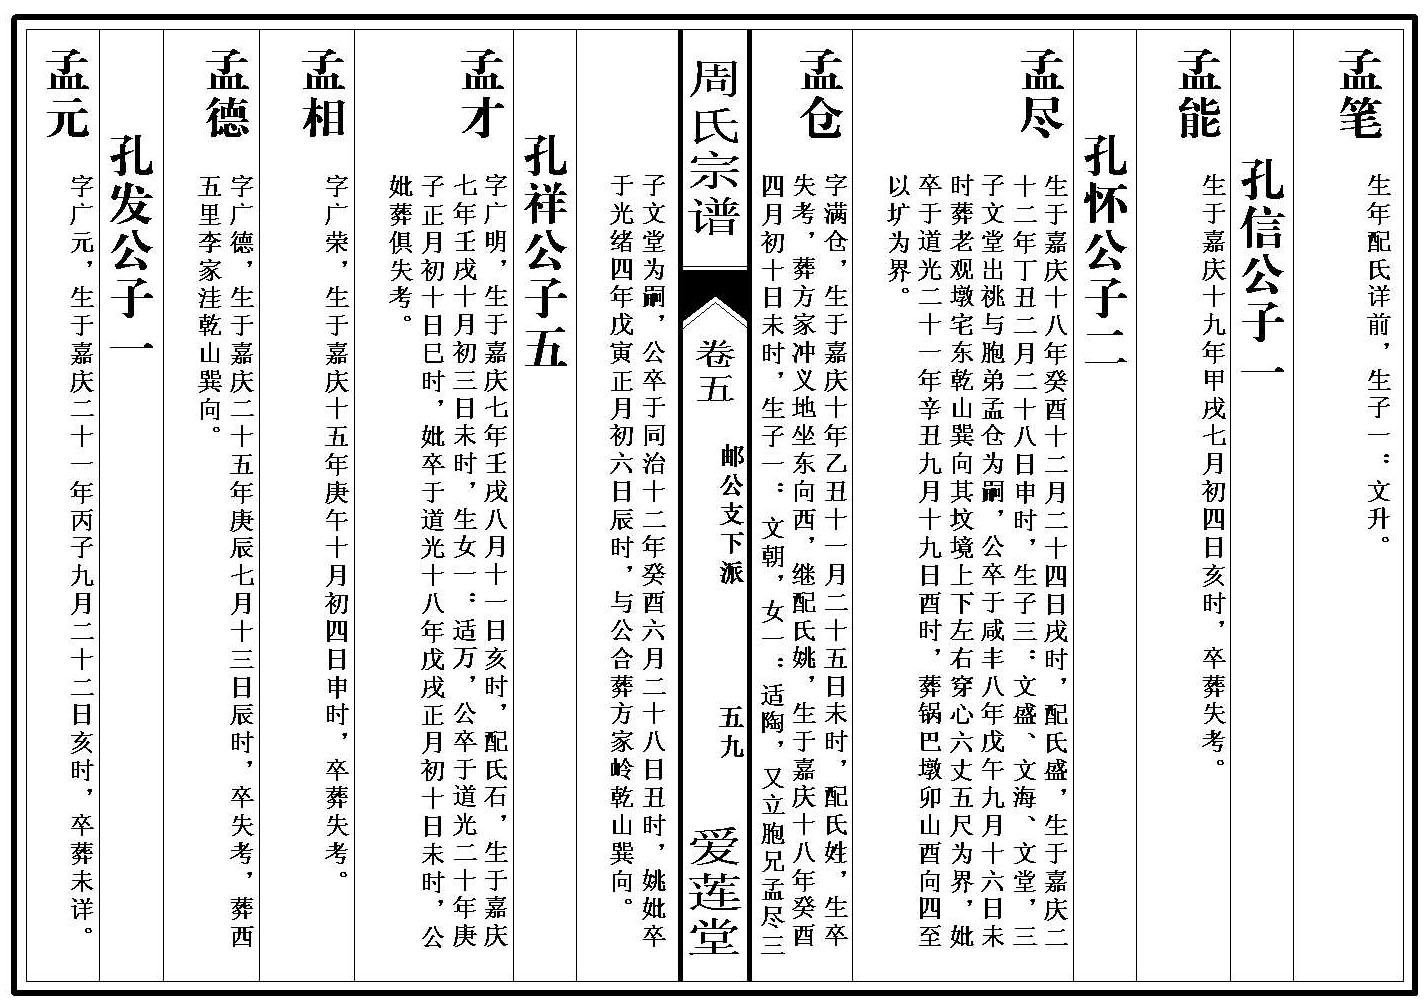 孟笔
生年配氏详前，生子一：文升。
孔信公子一
孟能
生于嘉庆十九年甲戌七月初四日亥时，卒葬失考。
孔怀公子二
孟尽
生于嘉庆十八年癸酉十二月二十四日戌时，配氏盛，生于嘉庆二
十二年丁丑二月二十八日申时，生子三：文盛、文海、文堂，三
子文堂出祧与胞弟孟仓为嗣，公卒于咸丰八年戊午九月十六日未
时葬老观墩宅东乾山巽向其坟境上下左右穿心六丈五尺为界，妣
卒于道光二十一年辛丑九月十九日酉时，葬锅巴墩卯山酉向四至
以圹为界。
孟仓
字满仓，生于嘉庆十年乙丑十一月二十五日未时，配氏姓，生卒
失考，葬方家冲义地坐东向西，继配氏姚，生于嘉庆十八年癸酉
四月初十日未时，生子一：文朝，女一：适陶，又立胞兄孟尽三
周氏宗谱
卷五
邮公支下派
五九
爱莲堂
子文堂为嗣，公卒于同治十二年癸酉六月二十八日丑时，姚妣卒
于光绪四年戊寅正月初六日辰时，与公合葬方家岭乾山巽向。
孔祥公子五
孟才
字广明，生于嘉庆七年壬戌八月十一日亥时，配氏石，生于嘉庆
七年壬戌十月初三日未时，生女一：适万，公卒于道光二十年庚
子正月初十日巳时，妣卒于道光十八年戊戌正月初十日未时，公
妣葬俱失考。
孟相
字广荣，生于嘉庆十五年庚午十月初四日申时，卒葬失考。
孟德
字广德，生于嘉庆二十五年庚辰七月十三日辰时，卒失考，葬西
五里李家洼乾山巽向。
孔发公子一
孟元
字广元，生于嘉庆二十一年丙子九月二十二日亥时，卒葬未详。